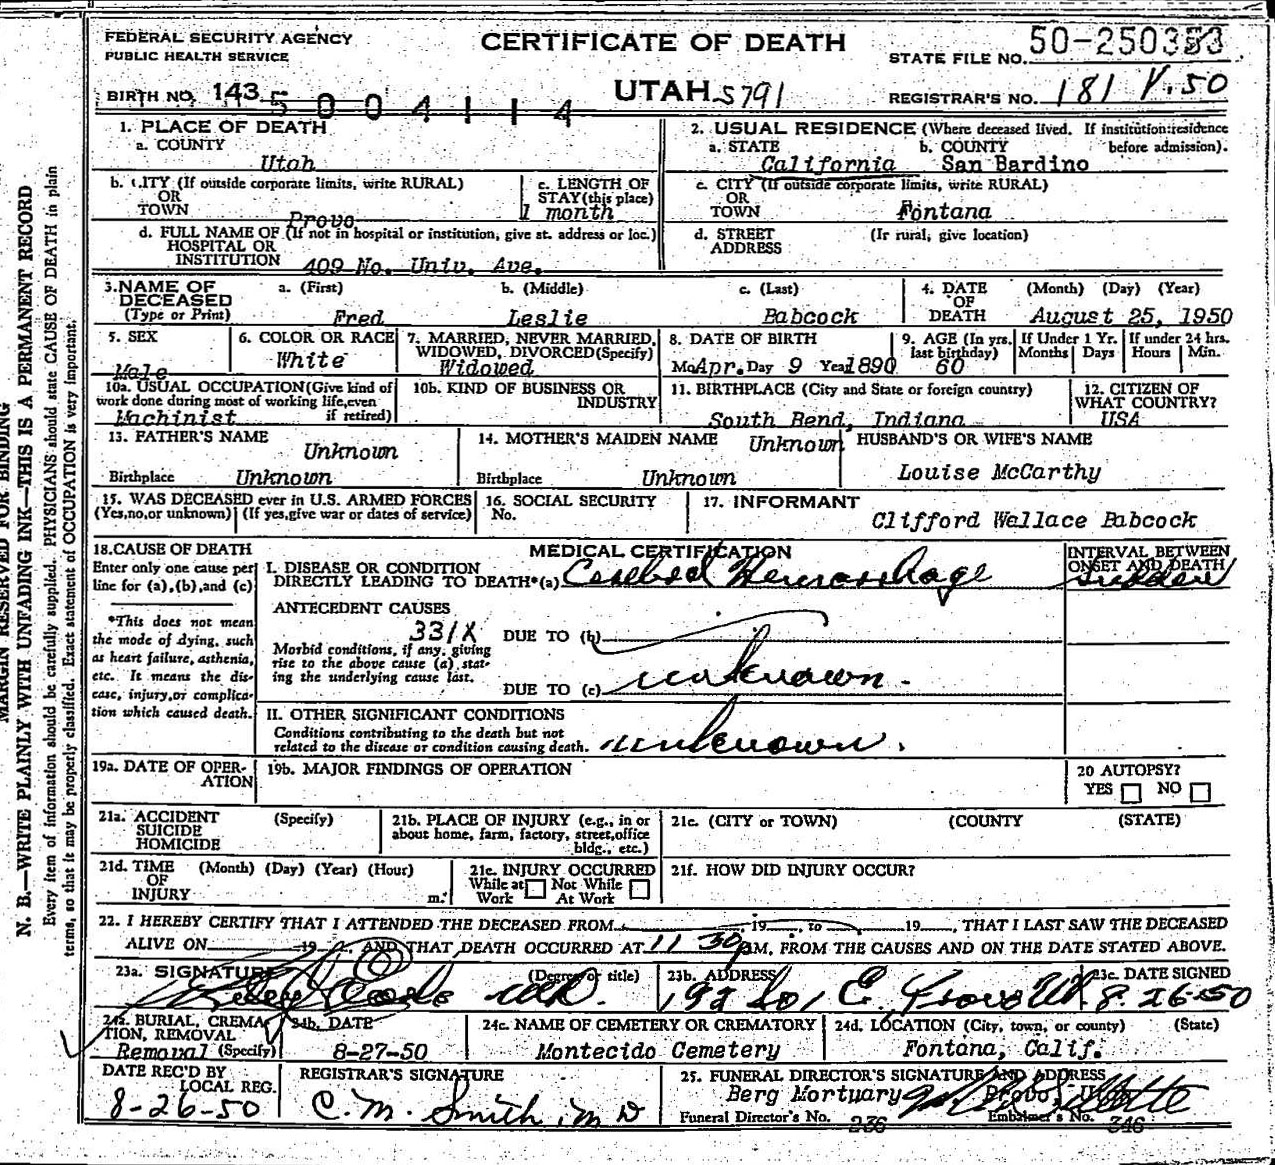 FEDERAL SECURITY AGENCY
PUBLIC HEALTH SERVICE
CERTIFICATE OF DEATH
STATE FILE NO.
BIRTH NO. 143 5004114
UTAH S791
REGISTRAR'S NO. 181 V.50
1. PLACE OF DEATH
a. COUNTY
Utah
2. USUAL RESIDENCE (Where deceased lived. If institution:residence before admission).
a. STATE b. COUNTY
California San Bardino
b. CITY (If outside corporate limits, write RURAL)
OR
TOWN Provo
c. LENGTH OF
STAY (this place)
1 month
c. CITY (If outside corporate limits, write RURAL)
OR
TOWN Fontana
d. FULL NAME OF (If not in hospital or institution, give st. address or loc.)
HOSPITAL OR
INSTITUTION 409 No. Univ. Ave.
d. STREET (If rural, give location)
ADDRESS
3. NAME OF DECEASED
(Type or Print)
a. (First) b. (Middle) c. (Last)
Fred Leslie Babcock
4. DATE OF DEATH (Month) (Day) (Year)
August 25, 1950
5. SEX
Male
6. COLOR OR RACE
White
7. MARRIED, NEVER MARRIED,
WIDOWED, DIVORCED (Specify)
Widowed
8. DATE OF BIRTH
Mo Apr. Day 9 Year 1890
9. AGE (In yrs. last birthday)
60
If Under 1 Yr. Months Days
If under 24 hrs. Hours Min.
10a. USUAL OCCUPATION (Give kind of
work done during most of working life, even
if retired)
Machinist
10b. KIND OF BUSINESS OR
INDUSTRY
11. BIRTHPLACE (City and State or foreign country)
South Bend, Indiana
12. CITIZEN OF
WHAT COUNTRY?
USA
13. FATHER'S NAME
Unknown
Birthplace Unknown
14. MOTHER'S MAIDEN NAME Unknown
Birthplace Unknown
HUSBAND'S OR WIFE'S NAME
Louise McCarthy
15. WAS DECEASED ever in U.S. ARMED FORCES
(Yes, no, or unknown) (If yes, give war or dates of service)
16. SOCIAL SECURITY
No.
17. INFORMANT
Clifford Wallace Babcock
18. CAUSE OF DEATH
Enter only one cause per
line for (a), (b), and (c)
*This does not mean
the mode of dying, such
as heart failure, asthenia,
etc. It means the dis-
ease, injury, or complica-
tion which caused death.
MEDICAL CERTIFICATION
I. DISEASE OR CONDITION
DIRECTLY LEADING TO DEATH*(a) Cerebral Hemorrhage
INTERVAL BETWEEN
ONSET AND DEATH
sudden
ANTECEDENT CAUSES
331X DUE TO (b)
Morbid conditions, if any, giving
rise to the above cause (a) stat-
ing the underlying cause last.
DUE TO (c) unknown.
II. OTHER SIGNIFICANT CONDITIONS
Conditions contributing to the death but not
related to the disease or condition causing death. unknown.
19a. DATE OF OPER-
ATION
19b. MAJOR FINDINGS OF OPERATION
20 AUTOPSY?
YES NO
21a. ACCIDENT (Specify)
SUICIDE
HOMICIDE
21b. PLACE OF INJURY (e.g., in or
about home, farm, factory, street, office
bldg., etc.)
21c. (CITY or TOWN) (COUNTY (STATE)
21d. TIME (Month) (Day) (Year) (Hour)
OF
INJURY m.
21e. INJURY OCCURRED
While at Work Not While At Work
21f. HOW DID INJURY OCCUR?
22. I HEREBY CERTIFY THAT I ATTENDED THE DECEASED FROM 19 , to 19 , THAT I LAST SAW THE DECEASED
ALIVE ON 19 AND THAT DEATH OCCURRED AT 11 30 P.M., FROM THE CAUSES AND ON THE DATE STATED ABOVE.
23a. SIGNATURE (Degree or title)
23b. ADDRESS
23c. DATE SIGNED
8-26-50
24a. BURIAL, CREMA-
TION, REMOVAL
Removal (Specify)
24b. DATE
8-27-50
24c. NAME OF CEMETERY OR CREMATORY
Montecido Cemetery
24d. LOCATION (City, town, or county) (State)
Fontana, Calif.
DATE REC'D BY
LOCAL REG.
8-26-50
REGISTRAR'S SIGNATURE
C. M. Smith, M D
25. FUNERAL DIRECTOR'S SIGNATURE AND ADDRESS
Berg Mortuary Provo, U
Funeral Director's No. 236 Embalmer's No. 346
MARGIN RESERVED FOR BINDING
N. B.—WRITE PLAINLY WITH UNFADING INK—THIS IS A PERMANENT RECORD
Every item of information should be carefully supplied. PHYSICIANS should state CAUSE OF DEATH in plain
terms, so that it may be properly classified. Exact statement of OCCUPATION is very important.